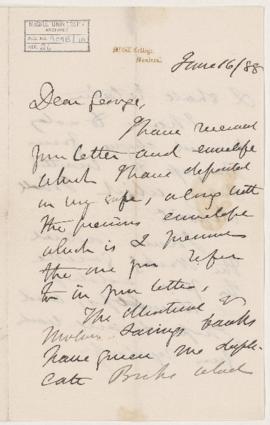 McGILL UNIVERSITY
ARCHIVES
ACC. NO.
REF.
McGill College,
Montreal.
June 16/88
Dear George,
I have received
your letter and envelope
which I have deposited
in my safe, along with
the previous envelope
which is I presume
the one you refer
to in your letter,
The Montreal &
Molsons Savings banks
have given me dupli-
cate Books which